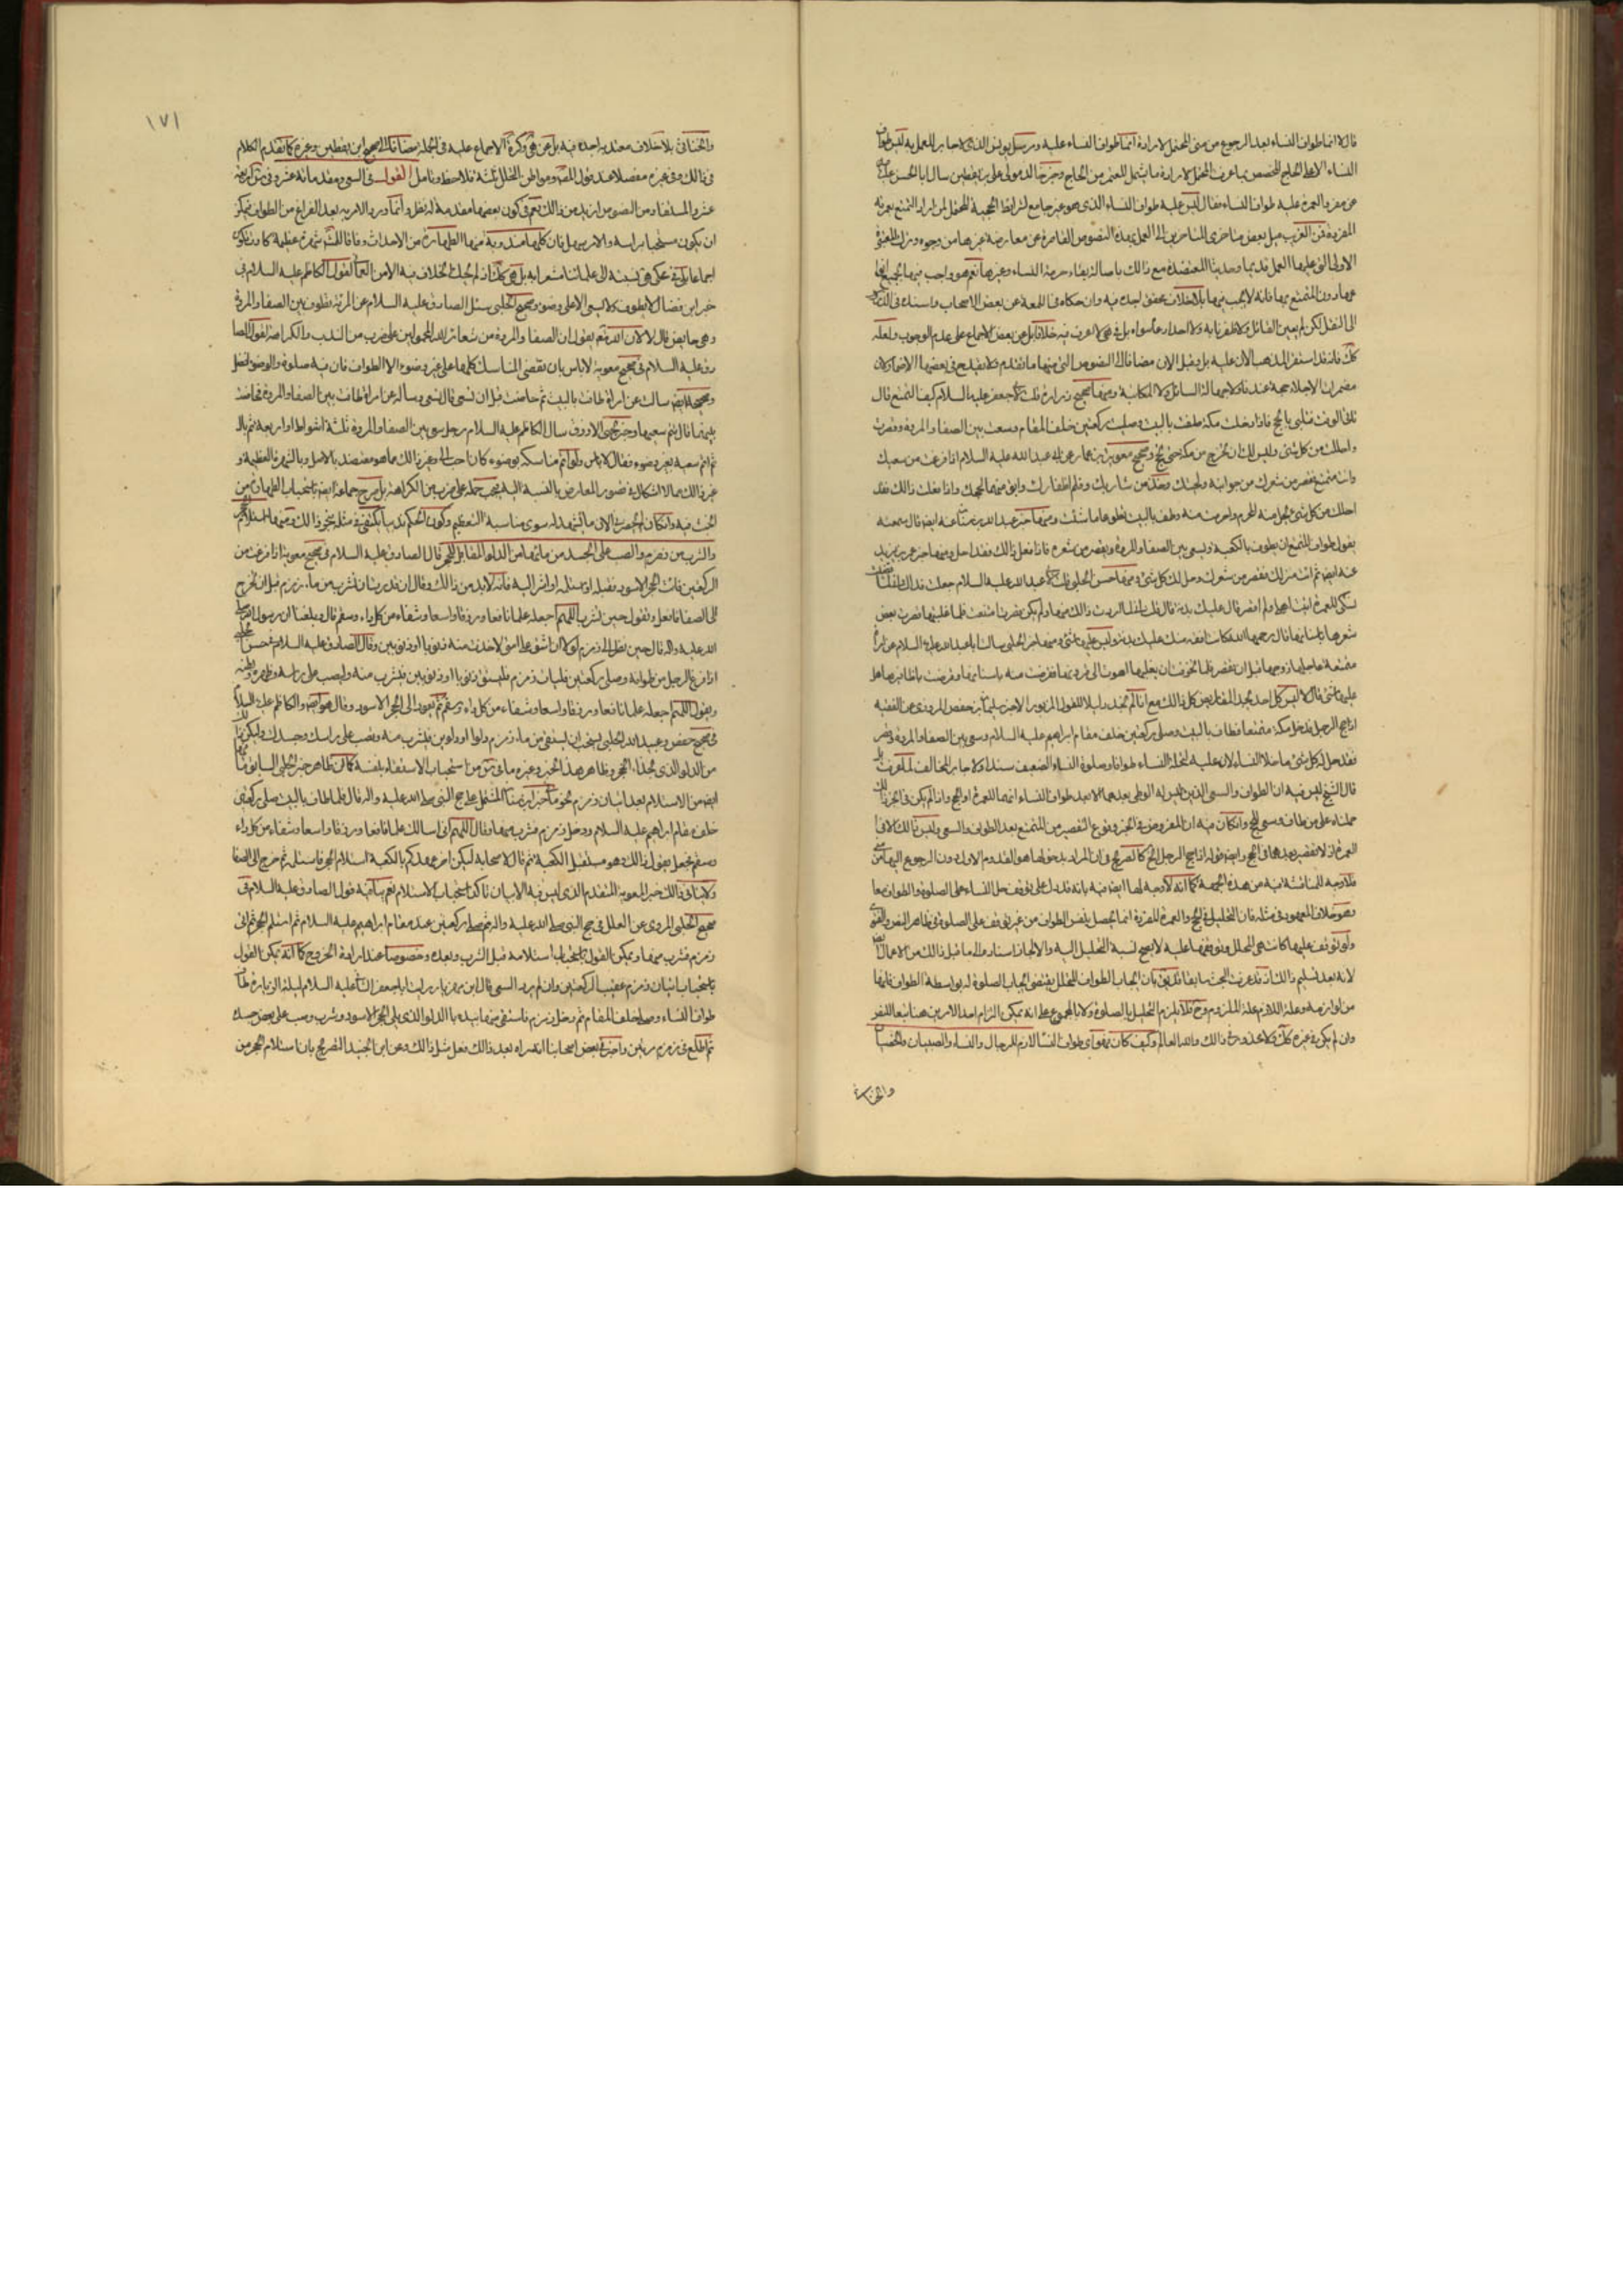 قال لا انما طواف النساء بعد الرجوع من منى المحتمل لارادة انما طواف النساء عليه ومرسل يونس الذى لا جابر للعمل به ليس طواف
النساء الا على الحاج المختص بما عرفت المحتمل لارادة ما يشمل المعتمر من الحاج وخبر
عن مفرد العمرة عليه طواف النساء فقال ليس عليه طواف النساء الذى هو غير جامع لشرايط الحجية المحتمل لمن اراد التمتع بعمرته
المفردة فمن الغريب ميل بعض متاخرى المتاخرين الى العمل بهذه النصوص القاصرة عن معارضة غيرها من وجوه وترك المعتبرة
الاولى التى عليها العمل قديما وحديثا المعتضدة مع ذلك باصالة بقاء حرمة النساء وغيرها نعم هو واجب فيها جميعها
عدا عمرة التمتع بها فانه لا يجب فيها بلا خلاف محقق اجده فيه وان حكاه فى اللمعة عن بعض الاصحاب واسنده فى
الى النقل لكن لم يعين القائل ولا ظفرنا به ولا احد ادعاه سواه بل فى هى لا اعرف فيه خلافا بل عن بعض الاجماع على عدم الوجوب ولعله
كك فانه قد استقر المذهب الان عليه بل وقبل الان مضافا الى النصوص التى منها ما تقدم ولا يقدح فى بعضها الاضمار لان
مضمرات الاجلاء حجة عندنا ولا جهالة السائل ولا المكاتبة ومنها صحيح زرارة قلت لابى جعفر عليه السلام كيف التمتع قال
تاتى الوقت فتلبى بالحج فاذا دخلت مكة طفت بالبيت وصليت ركعتين خلف المقام وسعيت بين الصفا والمروة وقصرت
واحللت من كل شئ وليس لك ان تخرج من مكة حتى تحج وصحيح معوية بن عمار عن ابى عبد الله عليه السلام اذا فرغت من سعيك
وانت متمتع فقصر من شعرك من جوانبه ولحيتك وخذ من شاربك وقلم اظفارك وابق منها لحجك واذا فعلت ذلك فقد
احللت من كل شئ يحل منه المحرم واحرمت منه وطف بالبيت تطوعا ما شئت ومنها خبر عبد الله بن سنان عنه ايضا قال سمعته
يقول طواف المتمتع ان يطوف بالكعبة ويسعى بين الصفا والمروة ويقصر من شعره فاذا فعل ذلك فقد احل ومنها خبر عمر بن يزيد
عنه ايضا ثم ائت منزلك فقصر من شعرك وحل لك كل شئ ومنها حسن الحلبى قلت لابى عبد الله عليه السلام جعلت فداك
نسكى للعمرة اتيت اهلى ولم اقصر قال عليك بدنة قال قلت انى لما اردت ذلك منها ولم يكن قصرت امتنعت فلما غلبتها قرضت بعض
شعرها باسنانها فقال رحمها الله كانت افقه منك عليك بدنة وليس عليها شئ ومنها خبر الحلبى سالت ابا عبد الله عليه السلام عن امراة
متمتعة عاجلها زوجها قبل ان تقصر فلما تخوفت ان يغلبها اهوت الى قرونها فقرضت منه باسنانها وقرضت باظافيرها هل
عليها شئ قال لا ليس كل احد يجد المقاريض الى غير ذلك مع انا لم نجد دليلا للقول المزبور الا خبر سليمان بن حفص المروزى عن الفقيه
اذا حج الرجل فدخل مكة متمتعا فطاف بالبيت وصلى ركعتين خلف مقام ابراهيم عليه السلام وسعى بين الصفا والمروة وقصر
فقد حل له كل شئ ما خلا النساء لان عليه لتحلة النساء طوافا وصلوة النساء الضعيف سندا ولا جابر المخالف لما عرفت
قال الشيخ ليس فيه ان الطواف والسعى الذين ليس له الوطى بعدهما الا بعد طواف النساء انهما للعمرة او للحج واذا لم يكن فى الخبر ذلك
حملناه على من طاف وسعى للحج وان كان فيه ان المفروض فى الخبر وقوع التقصير من المتمتع بعد الطواف والسعى وليس ذلك الا فى
العمرة اذ لا تقصير بعدهما فى الحج وايضا قوله اذا حج الرجل الخ كالصريح فى ان المراد بدخولها هو القدوم الاول دون الرجوع اليها من
فلا وجه للمناقشة فيه من هذه الجهة كما انه لا وجه لها ايضا فيه بانه قد دل على توقف حل النساء على الصلوة والطواف معا
وهو خلاف المعهود فى مثله فان التحليل فى الحج والعمرة المفردة انما يحصل بنفس الطواف من غير توقف على الصلوة فى ظاهر النص والفتوى
ولو توقف عليها كانت هى المحلل وتوقفها عليه لا يصح نسبة التحليل اليه والا لجاز اسناده الى ما قبل ذلك من الاعمال
لانه بعد تسليم ذلك اذ قد عرفت البحث سابقا قد يق بان ايجاب الطواف للمحلل يقتضى ايجاب الصلوة له بواسطة الطواف فانها
من لوازمه وعلة اللازم علة الملزوم وح فلا يلزم التحليل بالصلوة ولا بالمجموع على انه يمكن التزام احد الامرين هنا تبعا للنص
وان لم يكن فى غيره كك فلا محذور فى ذلك والله العالم وكيف كان فهو اى طواف النساء لازم للرجال والنساء والصبيان والخصيان
والخناثى
١٧١
والخناثى بلا خلاف معتد به اجده فيه بل عن هى وكرة الاجماع عليه فى الجملة مضافا الى صحيح ابن يقطين وغيره كما تقدم الكلام
فى ذلك وفى غيره مفصلا عند قول المصنف ومواطن التحلل ثلثة فلاحظ وتامل القول فى السعى ومقدماته عشرة
عشرة والمستفاد من النصوص ازيد من ذلك نعم فى كون بعضها مقدمة له نظر وانما ورد الامر به بعد الفراغ من الطواف فيمكن
ان يكون مستحبا براسه والامر سهل فان كلها مندوبة منها الطهارة من الاحداث وفاقا للمشهور شهرة عظيمة كادت تكون
اجماعا بل فى هى نسبته الى علمائنا مشعرا به بل هى كك اذ لم نجد الخلاف فيه الا من العمانى لقول الكاظم عليه السلام فى
خبر ابن فضال لا تطوف ولا تسعى الا على وضوء وصحيح الحلبى سئل الصادق عليه السلام عن المرئة تطوف بين الصفا والمروة
وهى حايض قال لا لان الله تعالى يقول ان الصفا والمروة من شعائر الله المحمولين على ضرب من الندب والكراهة لقول الصا
دق عليه السلام فى صحيح معوية لا باس بان تقضى المناسك كلها على غير وضوء الا الطواف فان فيه صلوة والوضوء افضل
وصحيحه ايضا سالته عن امراة طافت بالبيت ثم حاضت قبل ان تسعى قال تسعى وساله عن امراة طافت بين الصفا والمروة فحاضت
بينهما قال تتم سعيها وخبر يحيى الازرق سال الكاظم عليه السلام رجل سعى بين الصفا والمروة ثلثة اشواط او اربعة ثم بال
ثم اتم سعيه بغير وضوء فقال لا باس ولو اتم مناسكه بوضوء كان احب الى وغير ذلك مما هو معتضد بالاصل وبالشهرة العظيمة و
غير ذلك مما لا اشكال فى قصور المعارض بالنسبة اليه فيجب حمله على ضرب من الكراهة بل صرح جماعة ايضا باستحباب الطهارة من
الخبث فيه وان كان لم يحضرنى الان ما يشهد له سوى مناسبة التعظيم وكون الحكم ندبا يكتفى فى مثله بنحو ذلك ومنها استلام الحجر
والشرب من زمزم والصب على الجسد من مائها من الدلو المقابل للحجر قال الصادق عليه السلام فى صحيح معوية اذا فرغت من
الركعتين فات الحجر الاسود فقبله او استلمه او اشر اليه فانه لا بد من ذلك وقال ان قدرت ان تشرب من ماء زمزم قبل ان تخرج
الى الصفا فافعل وتقول حين تشرب اللهم اجعله علما نافعا ورزقا واسعا وشفاء من كل داء وسقم قال وبلغنا ان رسول الله صلى
الله عليه واله قال حين نظر الى زمزم لولا ان اشق على امتى لاخذت منه ذنوبا او ذنوبين وقال الصادق عليه السلام فى حسن الحلبى
اذا فرغ الرجل من طوافه وصلى ركعتين فليات زمزم فليستق ذنوبا او ذنوبين فليشرب منه وليصب على راسه وظهره وبطنه
ويقول اللهم اجعله علما نافعا ورزقا واسعا وشفاء من كل داء وسقم ثم يعود الى الحجر الاسود وقال هو ايضا والكاظم عليهما السلام
فى صحيح حفص وعبيد الله الحلبى يستحب ان يستقى من ماء زمزم دلوا او دلوين فيشرب منه وتصب على راسك وجسدك وليكن ذلك
من الدلو الذى بحذاء الحجر وظاهر هذا الخبر وغيره ما فى من من استحباب الاستقاء بنفسه كما ان ظاهر خبر الحلبى السابق
ايضا من الاستلام بعد اتيان زمزم نحو ما خبر ابن سنان المشتمل على حج النبى صلى الله عليه واله قال فلما طاف بالبيت صلى ركعتين
خلف مقام ابراهيم عليه السلام ودخل زمزم فشرب منها وقال اللهم انى اسالك علما نافعا ورزقا واسعا وشفاء من كل داء
وسقم فجعل يقول ذلك وهو مستقبل الكعبة ثم قال لاصحابه ليكن اخر عهدكم بالكعبة استلام الحجر فاستلمه ثم خرج الى الصفا
ولا ينافى ذلك خبر المعوية المتقدم الذى ليس فيه الا بيان تاكد استحباب الاستلام نعم ينافيه قول الصادق عليه السلام فى
صحيح الحلبى المروى عن العلل فى حج النبى صلى الله عليه واله ثم صلى ركعتين عند مقام ابراهيم عليه السلام ثم استلم الحجر ثم اتى
زمزم فشرب منها ويمكن القول باستحباب استلامه قبل الشرب وبعده وخصوصا عند ارادة الخروج كما انه يمكن القول
باستحباب اتيان زمزم عقيب الركعتين وان لم يرد السعى قال ابن مهزيار رايت ابا جعفر الثانى عليه السلام ليلة الزيارة طاف
طواف النساء وصلى خلف المقام ثم دخل زمزم فاستقى منها بيده بالدلو الذى يلى الحجر الاسود وشرب وصب على بعض جسده
ثم اطلع فى زمزم مرتين واخبرنى بعض اصحابنا انه راه بعد ذلك فعل مثل ذلك وعن ابن الجنيد التصريح بان استلام الحجر من